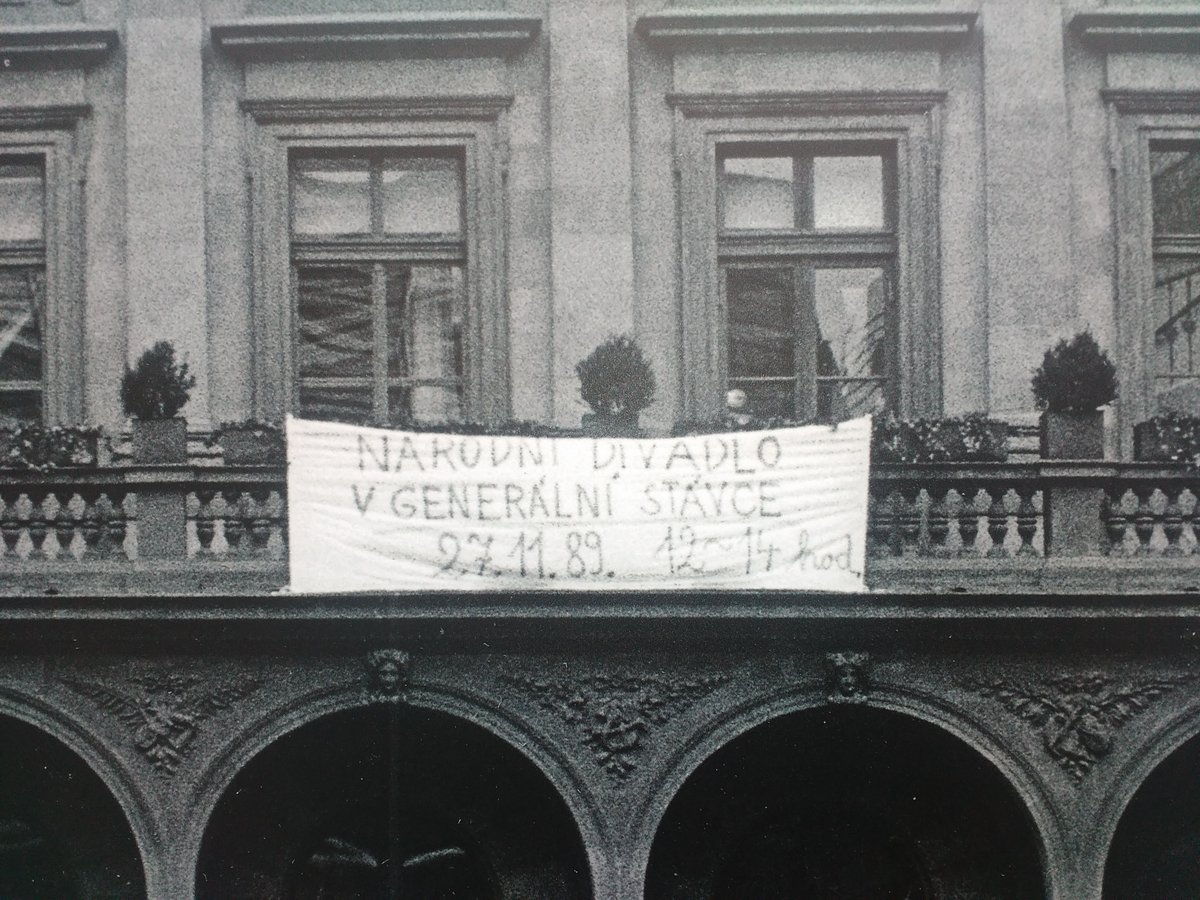 NÁRODNÍ DIVADLO
V GENERÁLNÍ STÁVCE
27.11.89. 12–14 hod.